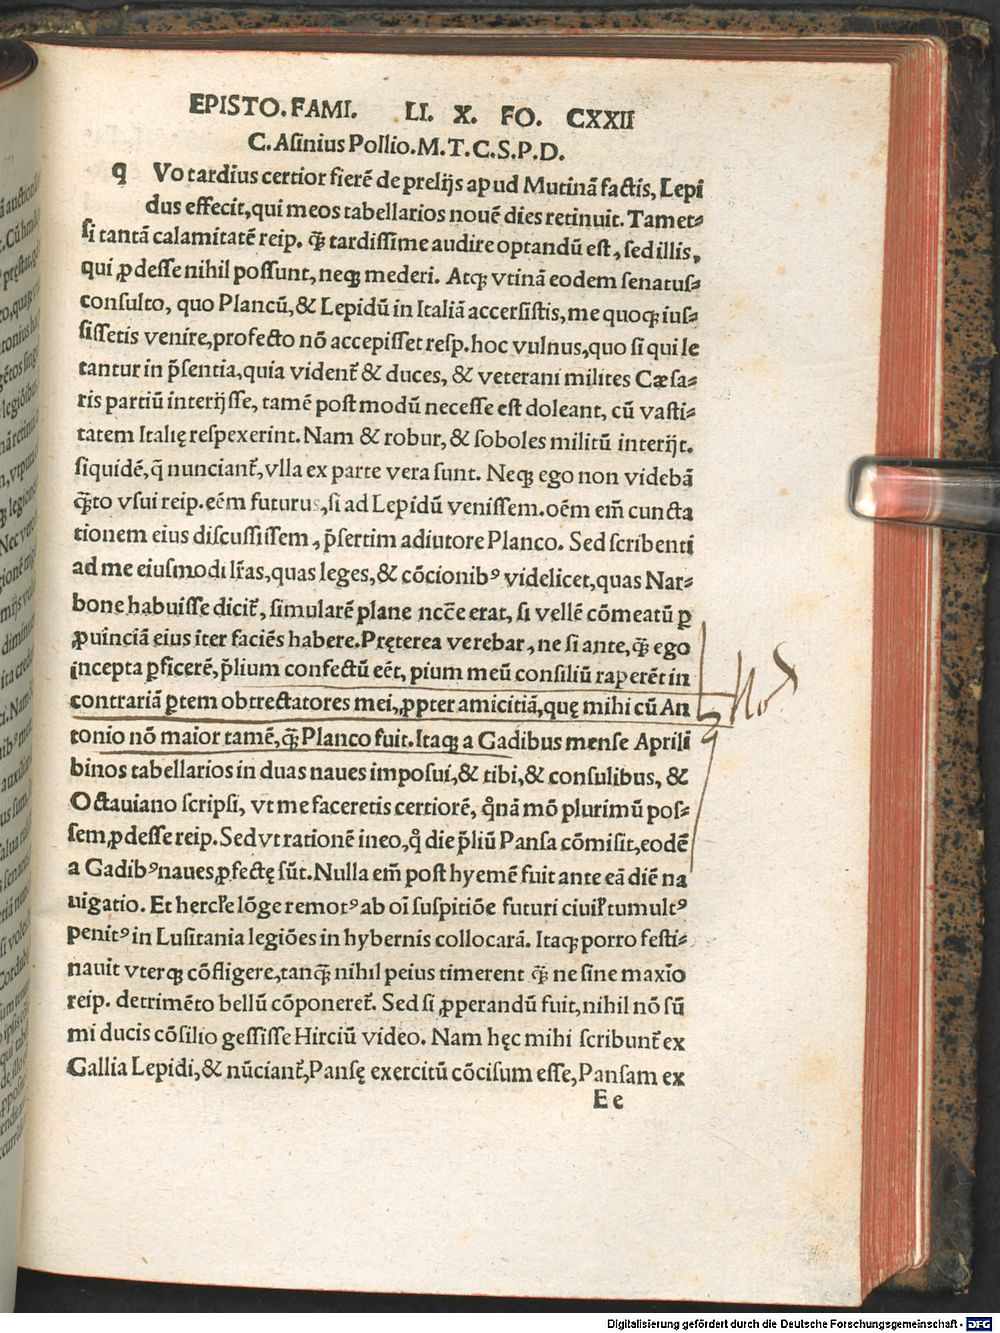 EPISTO. FAMI. LI. X. FO. CXXII
C. Asinius Pollio. M. T. C. S. P. D.
q Vo tardius certior fierē de prelijs apud Mutinā factis, Lepi
dus effecit, qui meos tabellarios nouē dies retinuit. Tamet⸗
si tantā calamitatē reip. q̄ȝ tardissime audire optandū est, sed illis,
qui ꝓdesse nihil possunt, neqȝ mederi. Atqȝ vtinā eodem senatus⸗
consulto, quo Plancū, & Lepidū in Italiā accersistis, me quoqȝ ius⸗
sissetis venire, profecto nō accepisset resp. hoc vulnus, quo si qui le
tantur in p̄sentia, quia vident᷑ & duces, & veterani milites Cæsa⸗
ris partiū interijsse, tamē post modū necesse est doleant, cū vasti⸗
tatem Italię respexerint. Nam & robur, & soboles militū interijt.
siquidē, q̄ nunciant᷑, vlla ex parte vera sunt. Neqȝ ego non videbā
q̄ȝto vsui reip. eēm futurus, si ad Lepidū venissem. oēm em̄ cuncta
tionem eius discussissem, p̄sertim adiutore Planco. Sed scribenti
ad me eiusmodi lr̄as, quas leges, & cōcionibꝰ videlicet, quas Nar⸗
bone habuisse dicit᷑, simularē plane ncc̄e erat, si vellē cōmeatū ꝑ
ꝓuinciā eius iter faciēs habere. Pręterea verebar, ne si ante, q̄ȝ ego
incepta ꝑficerē, p̄lium confectū eēt, pium meū consiliū raperēt in
contrariā ꝑtem obtrectatores mei, ꝓpter amicitiā, quę mihi cū An
tonio nō maior tamē, q̄ȝ Planco fuit. Itaqȝ a Gadibus mense Aprili
binos tabellarios in duas naues imposui, & tibi, & consulibus, &
Octauiano scripsi, vt me faceretis certiorē, q̊nā mō plurimū pos⸗
sem, ꝓdesse reip. Sed vt rationē ineo, q̊ die p̄liū Pansa cōmisit, eodē
a Gadibꝰ naues ꝓfectę sūt. Nulla em̄ post hyemē fuit ante eā diē na
uigatio. Et hercl̕e lōge remotꝰ ab oī suspitiōe futuri ciuil̕ tumultꝰ
penitꝰ in Lusitania legiōes in hybernis collocarā. Itaqȝ porro festi⸗
nauit vterqȝ cōfligere, tanq̄ȝ nihil peius timerent q̄ȝ ne sine maxīo
reip. detrimēto bellū cōponeret᷑. Sed si ꝓperandū fuit, nihil nō sū
mi ducis cōsilio gessisse Hirciū video. Nam hęc mihi scribunt᷑ ex
Gallia Lepidi, & nūciant᷑, Pansę exercitū cōcisum esse, Pansam ex
Ee
Digitalisierung gefördert durch die Deutsche Forschungsgemeinschaft - DFG